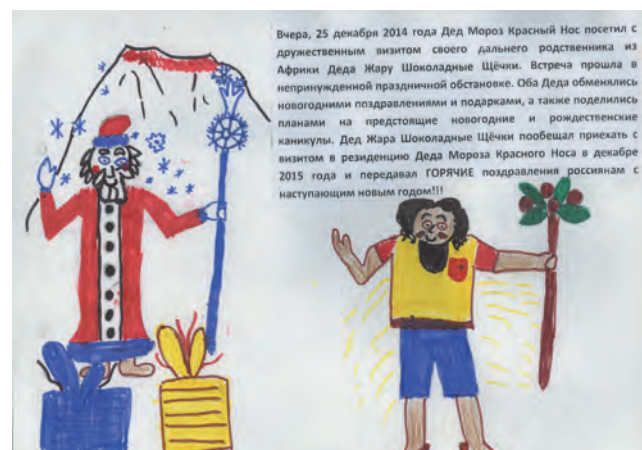 Вчера, 25 декабря 2014 года Дед Мороз Красный Нос посетил с
дружественным визитом своего дальнего родственника из
Африки Деда Жару Шоколадные Щёчки. Встреча прошла в
непринужденной праздничной обстановке. Оба Деда обменялись
новогодними поздравлениями и подарками, а также поделились
планами на предстоящие новогодние и рождественские
каникулы. Дед Жара Шоколадные Щёчки пообещал приехать с
визитом в резиденцию Деда Мороза Красного Носа в декабре
2015 года и передавал ГОРЯЧИЕ поздравления россиянам с
наступающим новым годом!!!